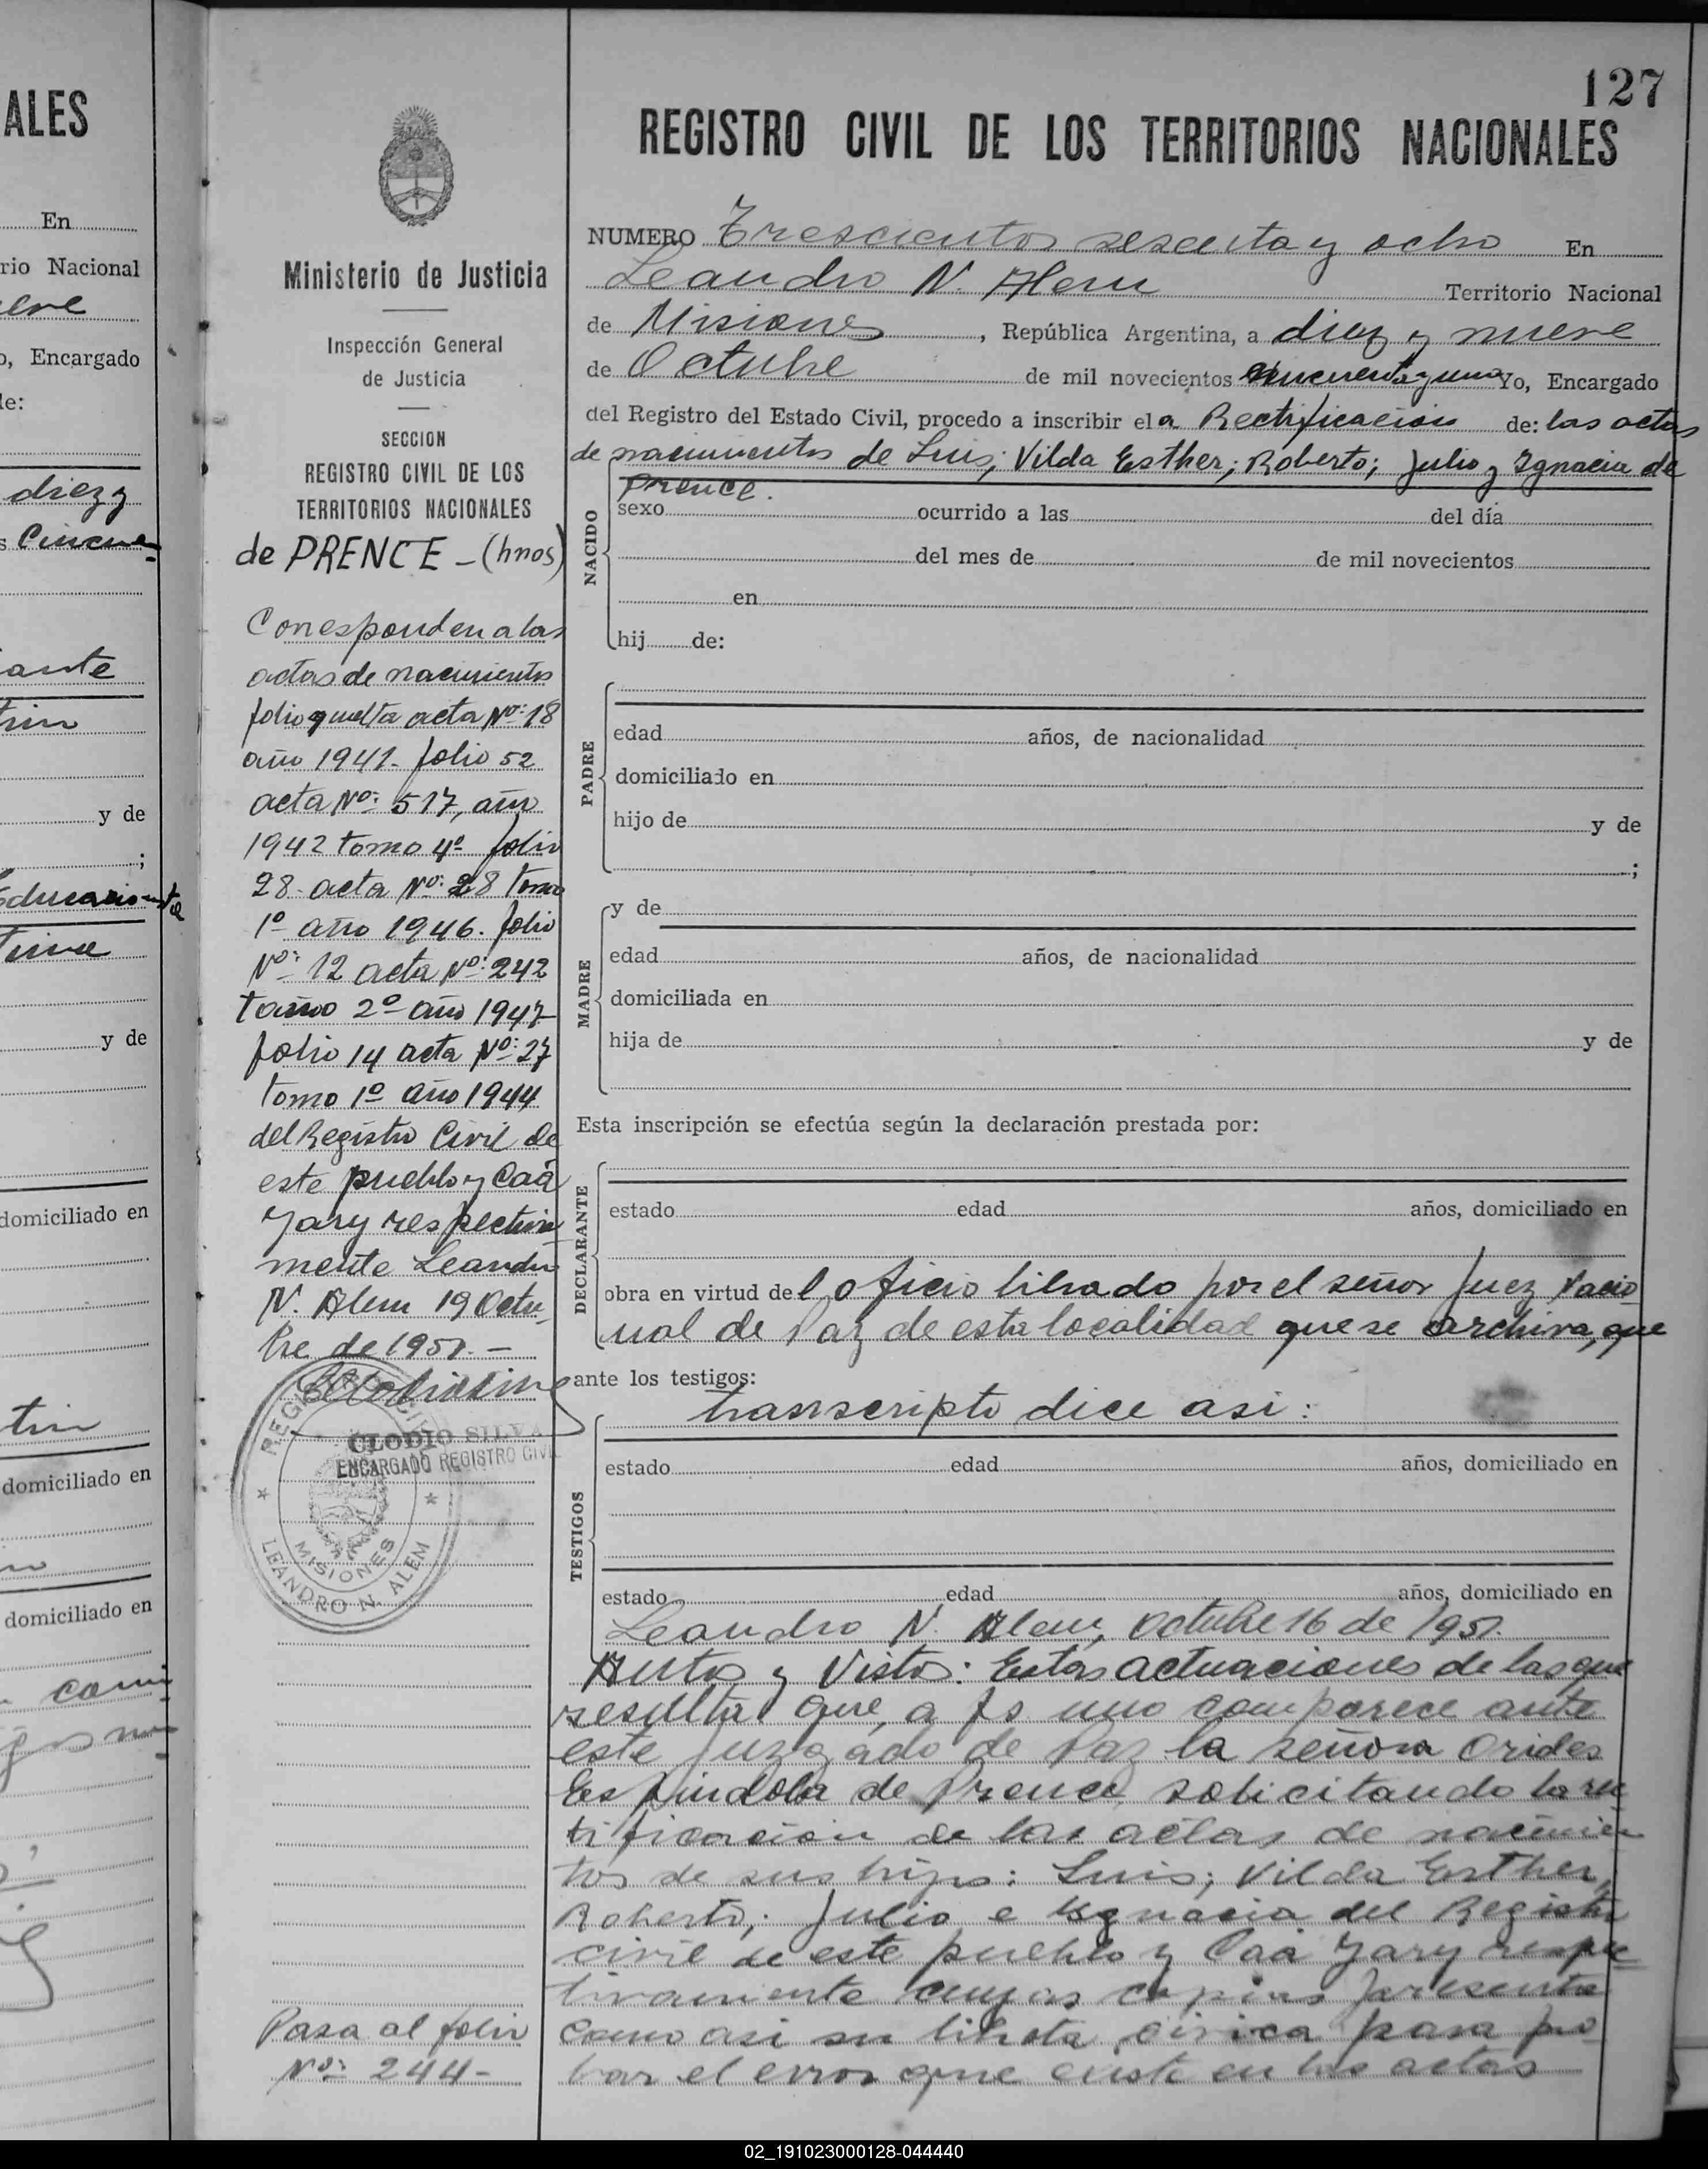 ALES
En
rio Nacional
o, Encargado
de:
diez y
s Cincuen
ante
y de
;
y de
domiciliado en
domiciliado en
domiciliado en
Ministerio de Justicia
Inspección General
de Justicia
SECCION
REGISTRO CIVIL DE LOS
TERRITORIOS NACIONALES
de PRENCE - (hnos)
Corresponden a las
actas de nacimientos
folio 9 vuelta acta Nº: 18
año 1941. folio 52
acta Nº: 517, año
1942 tomo 4º folio
28. acta Nº: 28 tomo
1º año 1946. folio
Nº: 12 acta Nº: 242
tomo 2º año 1947
folio 14 acta Nº: 27
tomo 1º año 1944
del Registro Civil de
este pueblo y Caá
Yary respectiva
mente Leandro
N. Alem 19 Octu
bre de 1951. -
REGISTRO CIVIL
CLODIO SILVA
ENCARGADO REGISTRO CIVIL
MISIONES
LEANDRO N. ALEM
Pasa al folio
Nº: 244-
127
REGISTRO CIVIL DE LOS TERRITORIOS NACIONALES
NUMERO Trescientos sesenta y ocho En
Leandro N. Alem Territorio Nacional
de Misiones, República Argentina, a diez y nueve
de Octubre de mil novecientos cincuenta y uno Yo, Encargado
del Registro del Estado Civil, procedo a inscribir el a Rectificación de: las actas
de nacimientos de Luis; Vilda Esther; Roberto; Julio y Ignacia de
Prence.
NACIDO
sexo ocurrido a las del día
del mes de de mil novecientos
en
hij de:
PADRE
edad años, de nacionalidad
domiciliado en
hijo de y de
;
MADRE
y de
edad años, de nacionalidad
domiciliada en
hija de y de
Esta inscripción se efectúa según la declaración prestada por:
DECLARANTE
estado edad años, domiciliado en
obra en virtud de l oficio librado por el señor Juez Nacio
nal de Paz de esta localidad que se archiva, que
ante los testigos:
transcripto dice asi:
TESTIGOS
estado edad años, domiciliado en
estado edad años, domiciliado en
Leandro N. Alem, Octubre 16 de 1951.
Autos y Vistos: Estas actuaciones de las que
resulta que, a fs uno comparece ante
este Juzgado de Paz la señora Orides
Espindola de Prence solicitando la rec
tificación de las actas de nacimien
tos de sus hijos: Luis; Vilda Esther,
Roberto; Julio e Ignacia del Registro
civil de este pueblo y Caá Yary respec
tivamente cuyas copias presenta
como asi su libreta civica para pro
bar el error que existe en las actas
02_191023000128-044440